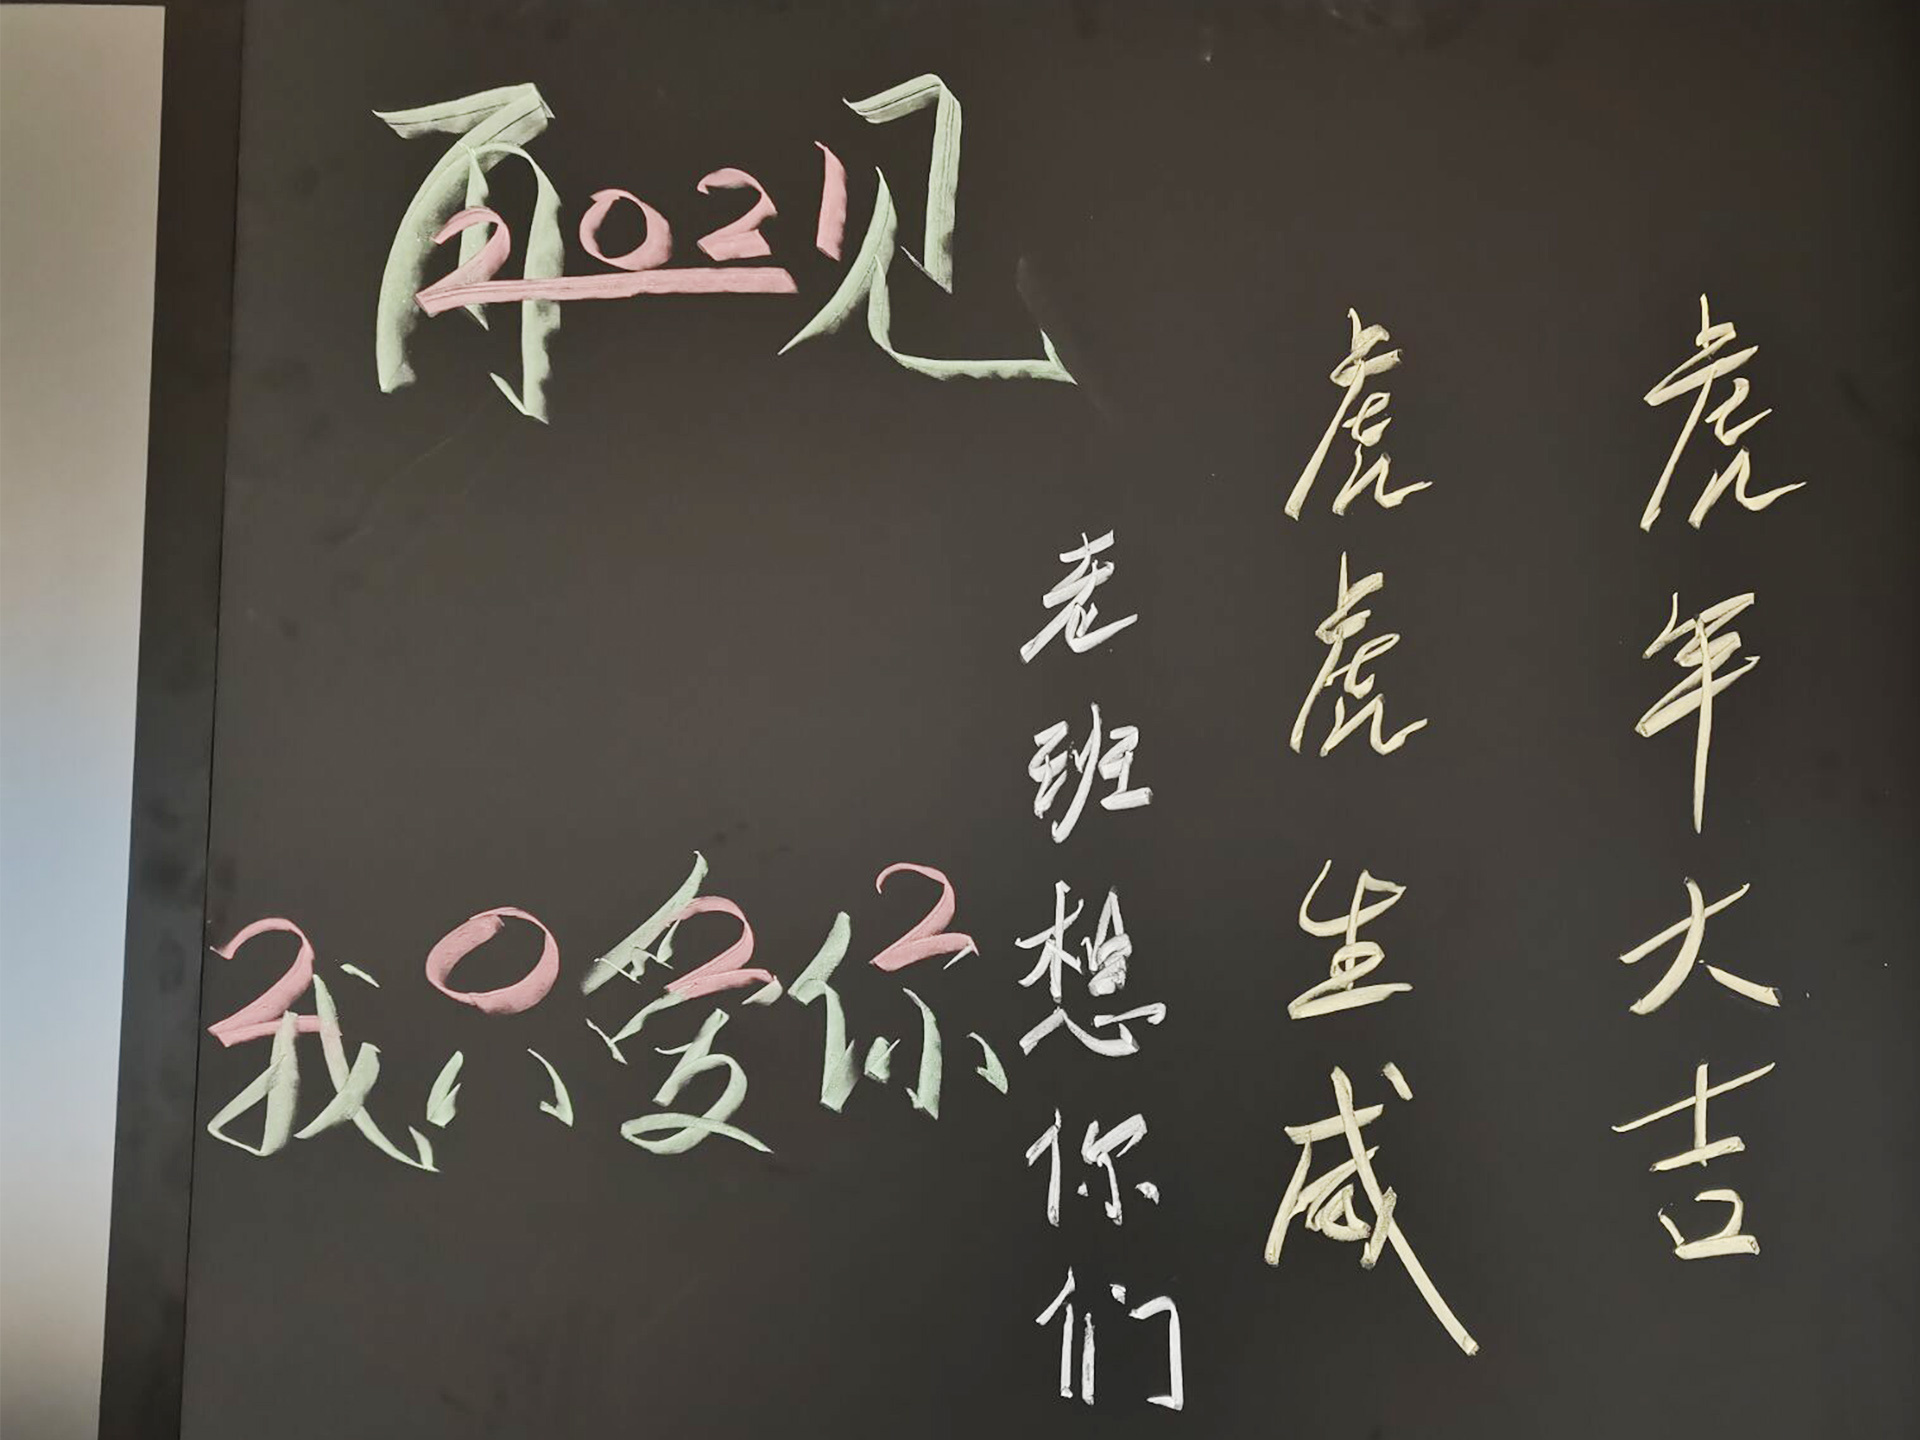 再见
2021
2022
我只爱你
虎年大吉
虎虎生威
老班想你们